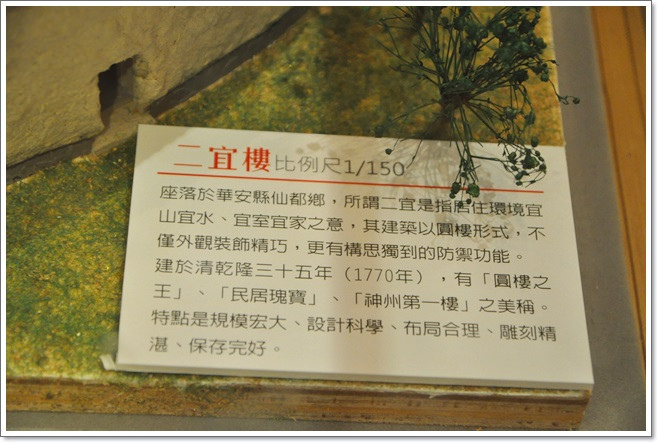 二宜樓 比例尺1/150
座落於華安縣仙都鄉，所謂二宜是指居住環境宜
山宜水、宜室宜家之意，其建築以圓樓形式，不
僅外觀裝飾精巧，更有構思獨到的防禦功能。
建於清乾隆三十五年（1770年），有「圓樓之
王」、「民居瑰寶」、「神州第一樓」之美稱。
特點是規模宏大、設計科學、布局合理、雕刻精
湛、保存完好。